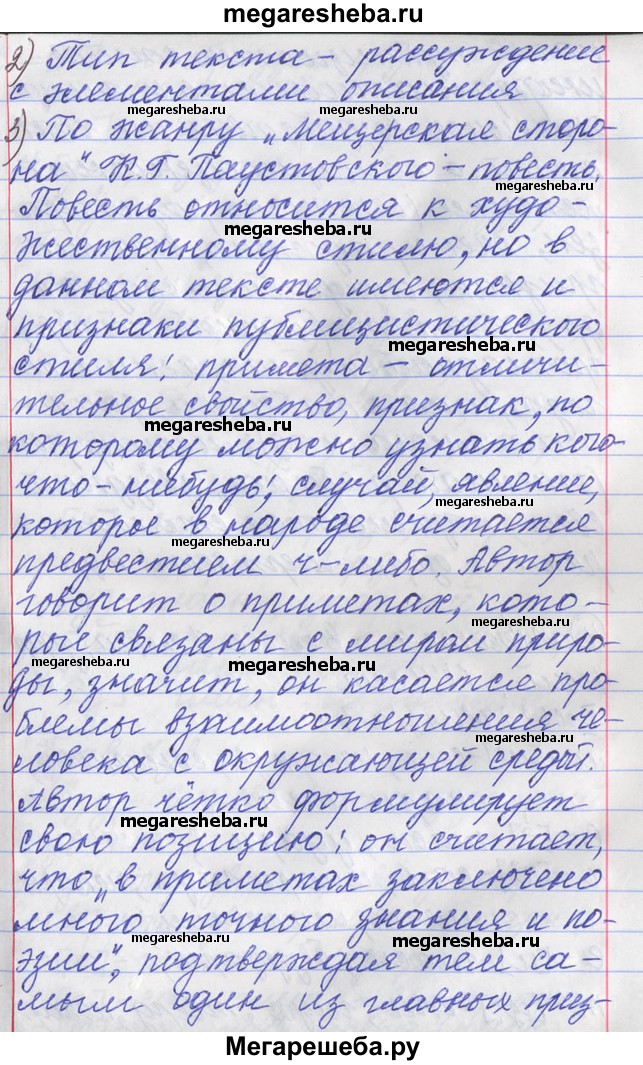 megaresheba.ru
2) Тип текста – рассуждение
с элементами описания
megaresheba.ru megaresheba.ru
3) По жанру „Мещерская сторо-
на" К.Г. Паустовского – повесть.
megaresheba.ru
Повесть относится к худо-
megaresheba.ru
жественному стилю, но в
данном тексте имеются и
признаки публицистического
megaresheba.ru
стиля: примета – отличи-
тельное свойство, признак, по
megaresheba.ru
которому можно узнать кого-
что-нибудь; случай, явление,
megaresheba.ru
которое в народе считается
megaresheba.ru
предвестием ч-либо. Автор
говорит о приметах, кото-
megaresheba.ru
рые связаны с миром приро-
megaresheba.ru megaresheba.ru
ды, значит, он касается про-
блемы взаимоотношения че-
megaresheba.ru
ловека с окружающей средой.
Автор чётко формулирует
megaresheba.ru
свою позицию: он считает,
что „в приметах заключено
много точного знания и по-
megaresheba.ru megaresheba.ru
эзии", подтверждая тем са-
мым один из главных приз-
Мегарешеба.ру